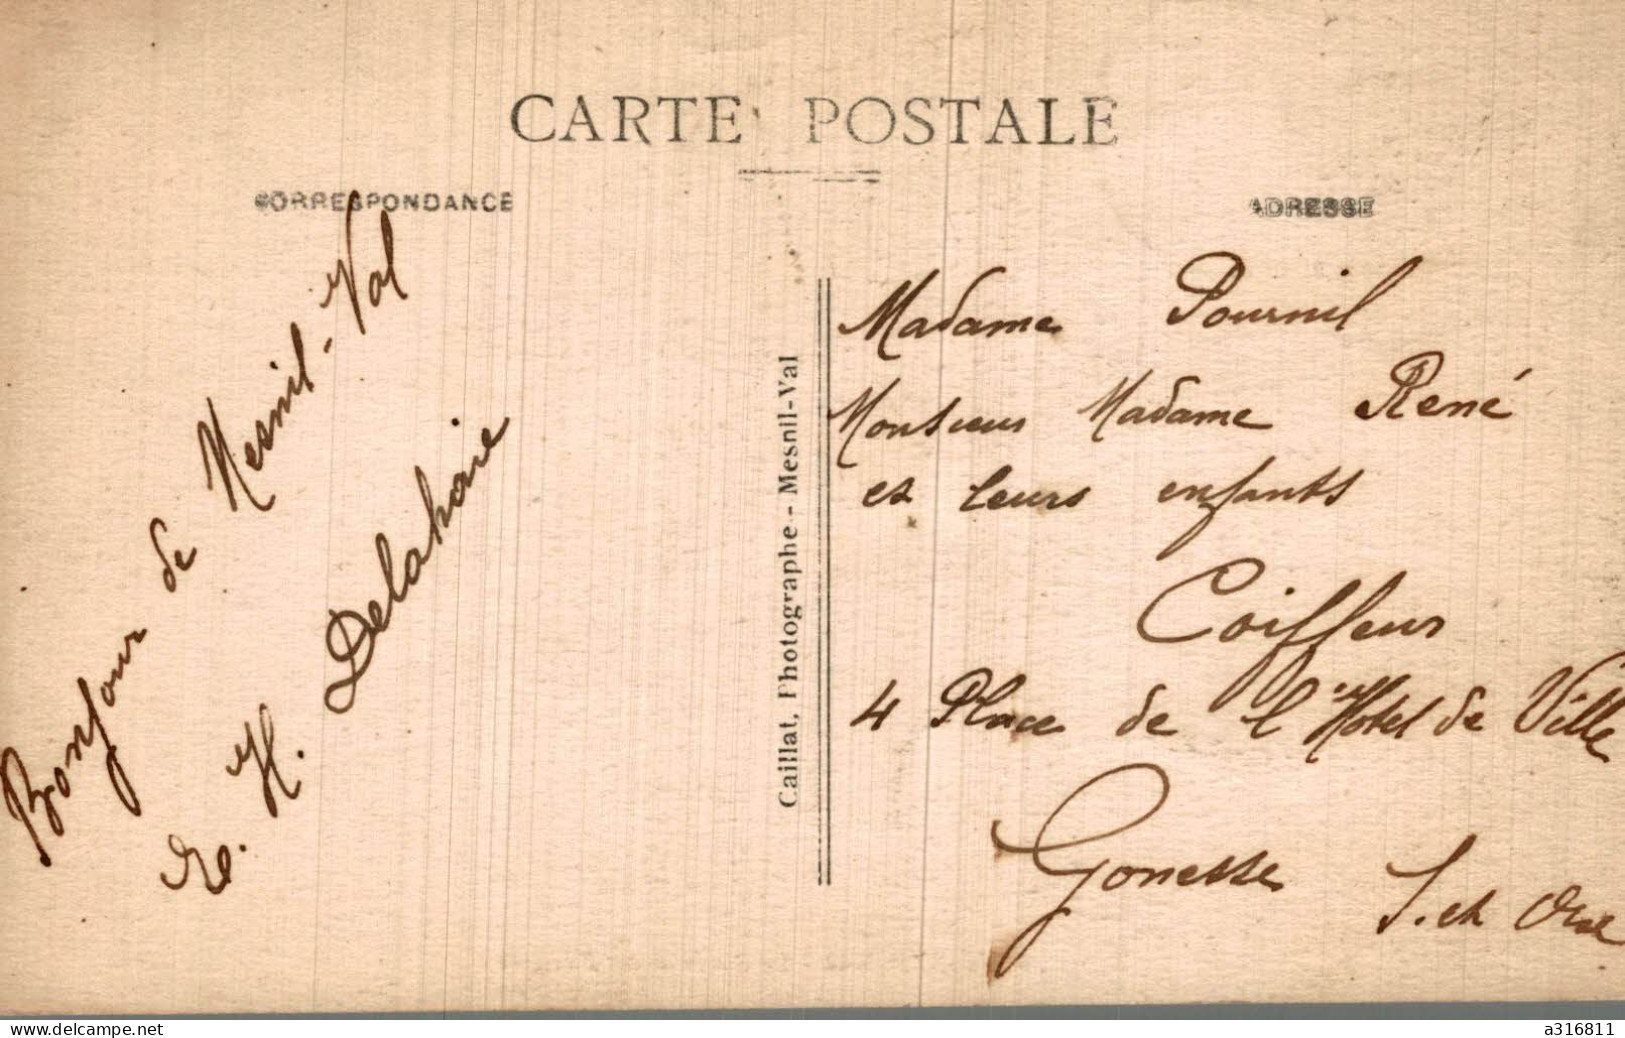 CARTE POSTALE
CORRESPONDANCE
ADRESSE
Bonjour de Mesnil-Val
H. Delahaie
Caillat, Photographe - Mesnil-Val
Madame Pournil
Monsieur Madame René
et leurs enfants
Coiffeur
4 Place de l'Hôtel de Ville
Gonesse S. et Oise
delcampe.net
a316811